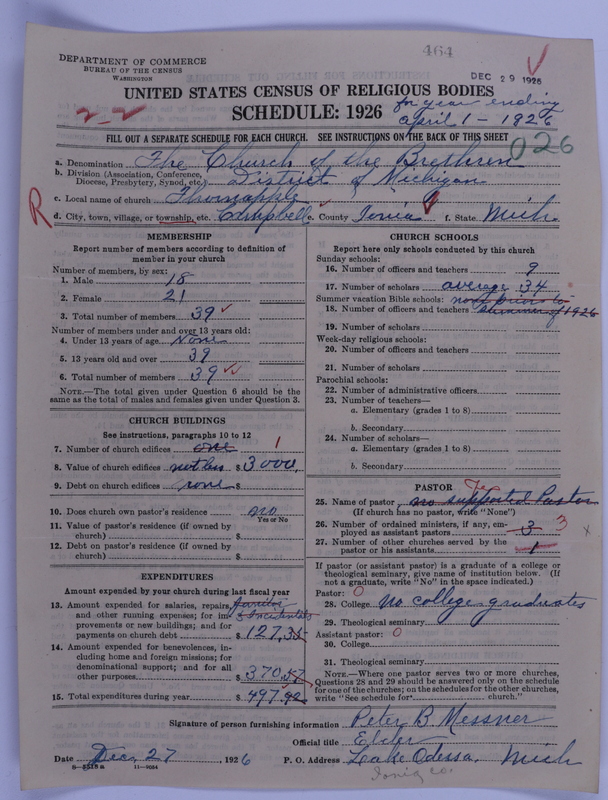 464
DEPARTMENT OF COMMERCE
BUREAU OF THE CENSUS
WASHINGTON
DEC 29 1926
UNITED STATES CENSUS OF RELIGIOUS BODIES
SCHEDULE: 1926
for year ending
april 1 - 1926
2-2
FILL OUT A SEPARATE SCHEDULE FOR EACH CHURCH. SEE INSTRUCTIONS ON THE BACK OF THIS SHEET
026
a. Denomination The Church of the Brethren
b. Division (Association, Conference, Diocese, Presbytery, Synod, etc.) District of Michigan
c. Local name of church Thornapple
R d. City, town, village, or township, etc. Campbell e. County Ionia f. State Mich.
MEMBERSHIP
Report number of members according to definition of
member in your church
Number of members, by sex:
1. Male 18
2. Female 21
3. Total number of members 39
Number of members under and over 13 years old:
4. Under 13 years of age None
5. 13 years old and over 39
6. Total number of members 39
NOTE.—The total given under Question 6 should be the
same as the total of males and females given under Question 3.
CHURCH BUILDINGS
See instructions, paragraphs 10 to 12
7. Number of church edifices one 1
8. Value of church edifices not less $ 3000,
9. Debt on church edifices none $
10. Does church own pastor's residence no
Yes or No
11. Value of pastor's residence (if owned by
church) $
12. Debt on pastor's residence (if owned by
church) $
EXPENDITURES
Amount expended by your church during last fiscal year
13. Amount expended for salaries, repairs, Janitor
and other running expenses; for im- & Incidentals
provements or new buildings; and for
payments on church debt $ 127,35
14. Amount expended for benevolences, in-
cluding home and foreign missions; for
denominational support; and for all
other purposes $ 370,57
15. Total expenditures during year $ 497.92
CHURCH SCHOOLS
Report here only schools conducted by this church
Sunday schools:
16. Number of officers and teachers 9
17. Number of scholars average 34
Summer vacation Bible schools: none prior to
18. Number of officers and teachers summer of 1926
19. Number of scholars
Week-day religious schools:
20. Number of officers and teachers
21. Number of scholars
Parochial schools:
22. Number of administrative officers
23. Number of teachers—
a. Elementary (grades 1 to 8)
b. Secondary
24. Number of scholars—
a. Elementary (grades 1 to 8)
b. Secondary
PASTOR
25. Name of pastor no supported Pastor
(If church has no pastor, write "None")
26. Number of ordained ministers, if any, em-
ployed as assistant pastors 3 3
27. Number of other churches served by the
pastor or his assistants 1
If pastor (or assistant pastor) is a graduate of a college or
theological seminary, give name of institution below. (If
not a graduate, write "No" in the space indicated.)
Pastor: 0
28. College no college graduates
29. Theological seminary
Assistant pastor: 0
30. College
31. Theological seminary
NOTE.—Where one pastor serves two or more churches,
Questions 28 and 29 should be answered only on the schedule
for one of the churches; on the schedules for the other churches,
write "See schedule for church."
Signature of person furnishing information Peter B. Messner
Official title Elder
Date Dec, 27, 1926 P. O. Address Lake Odessa, Mich
Ionia co.
8—5518a 11—9034